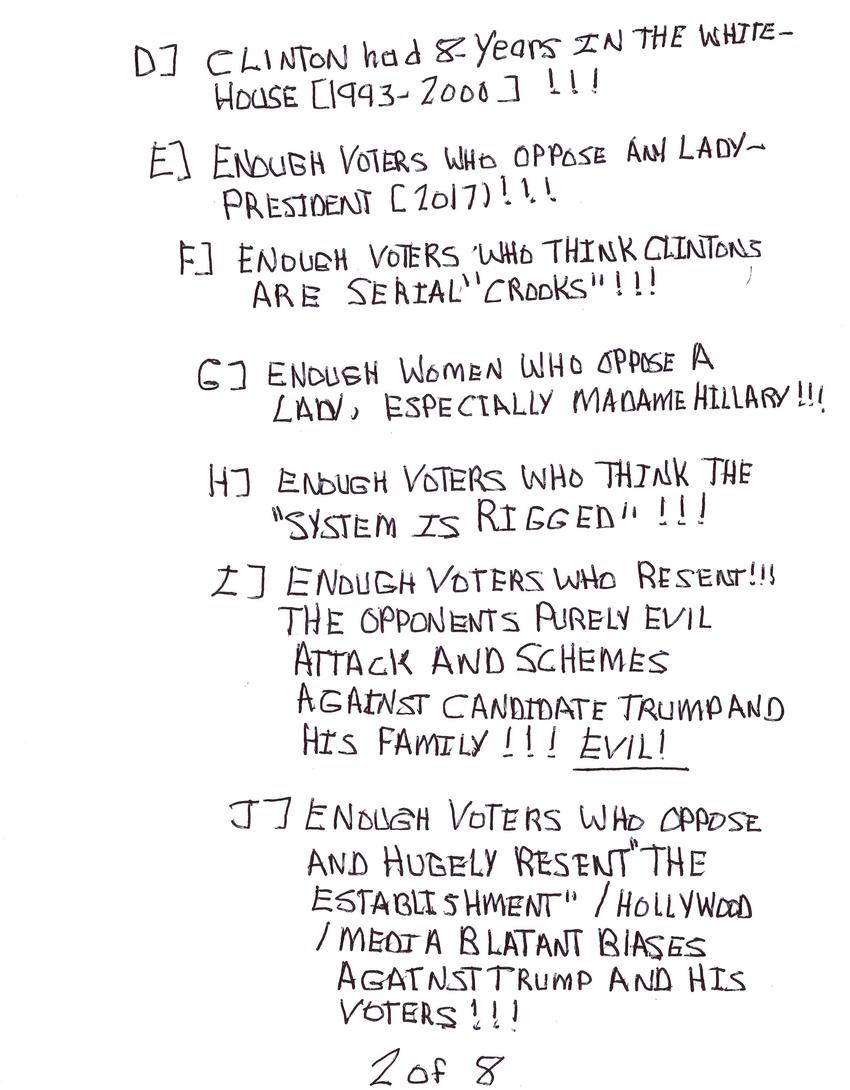 D] CLINTON had 8-Years IN THE WHITE-
HOUSE [1993-2000] !!!
E] ENOUGH VOTERS WHO OPPOSE AN LADY-
PRESIDENT [2017)!!!
F] ENOUGH VOTERS WHO THINK CLINTONS
ARE SERIAL "CROOKS"!!!
G] ENOUGH WOMEN WHO OPPOSE A
LADY, ESPECIALLY MADAME HILLARY!!!
H] ENOUGH VOTERS WHO THINK THE
"SYSTEM IS RIGGED" !!!
I] ENOUGH VOTERS WHO RESENT!!!
THE OPPONENTS PURELY EVIL
ATTACK AND SCHEMES
AGAINST CANDIDATE TRUMP AND
HIS FAMILY !!! EVIL!
J] ENOUGH VOTERS WHO OPPOSE
AND HUGELY RESENT "THE
ESTABLISHMENT" / HOLLYWOOD
/ MEDIA BLATANT BIASES
AGAINST TRUMP AND HIS
VOTERS !!!
2 of 8